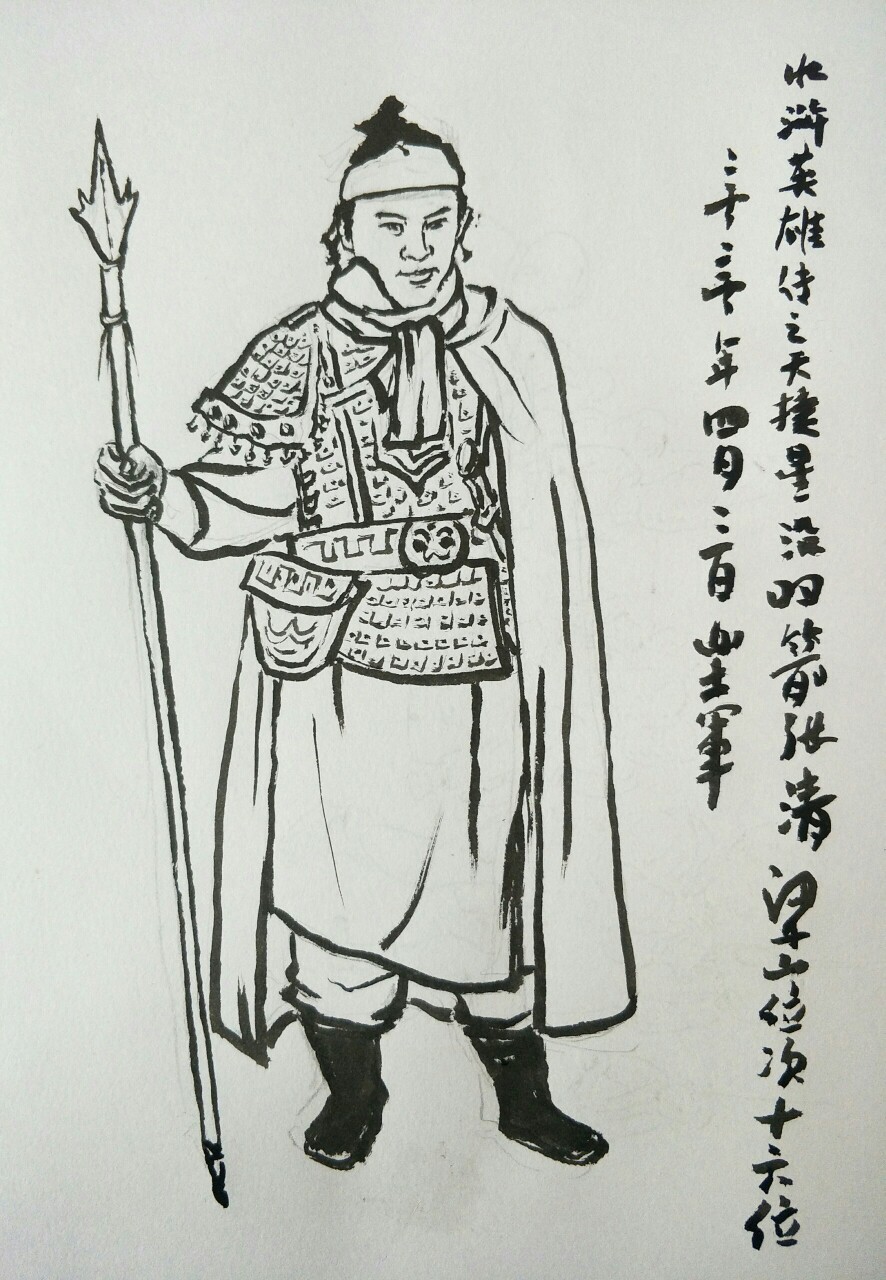 水浒英雄传之天捷星没羽箭张清梁山位次十六位
二零二零年四月二百